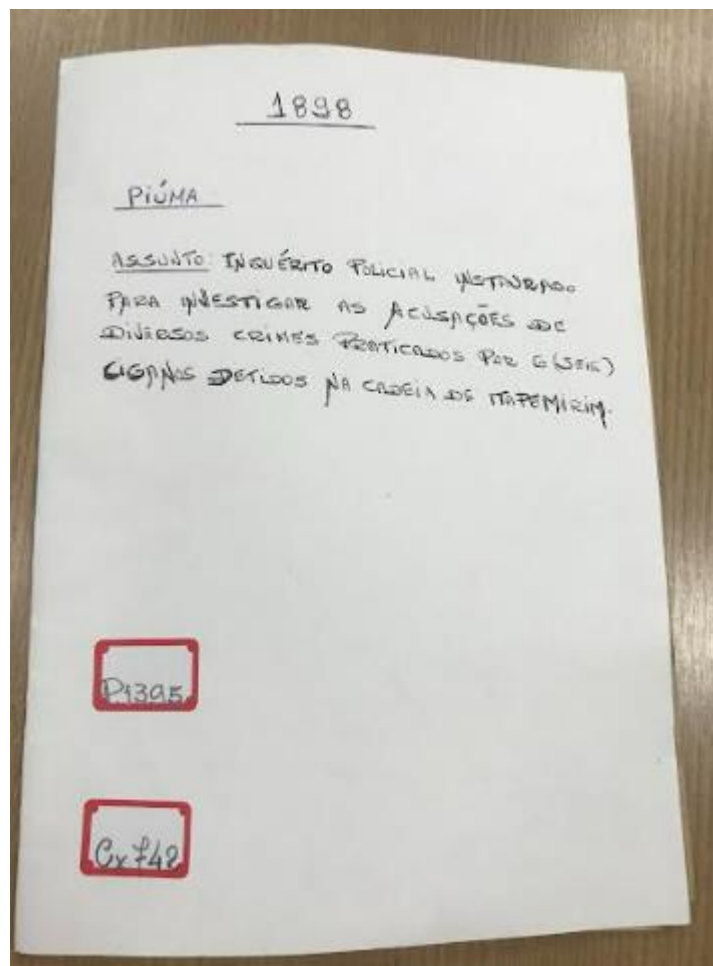 1898
PIÚMA
ASSUNTO: INQUÉRITO POLICIAL INSTAURADO
PARA INVESTIGAR AS ACUSAÇÕES DE
DIVERSOS CRIMES PRATICADOS POR 6 (SEIS)
CIGANOS DETIDOS NA CADEIA DE ITAPEMIRIM.
P1395
Cx 742